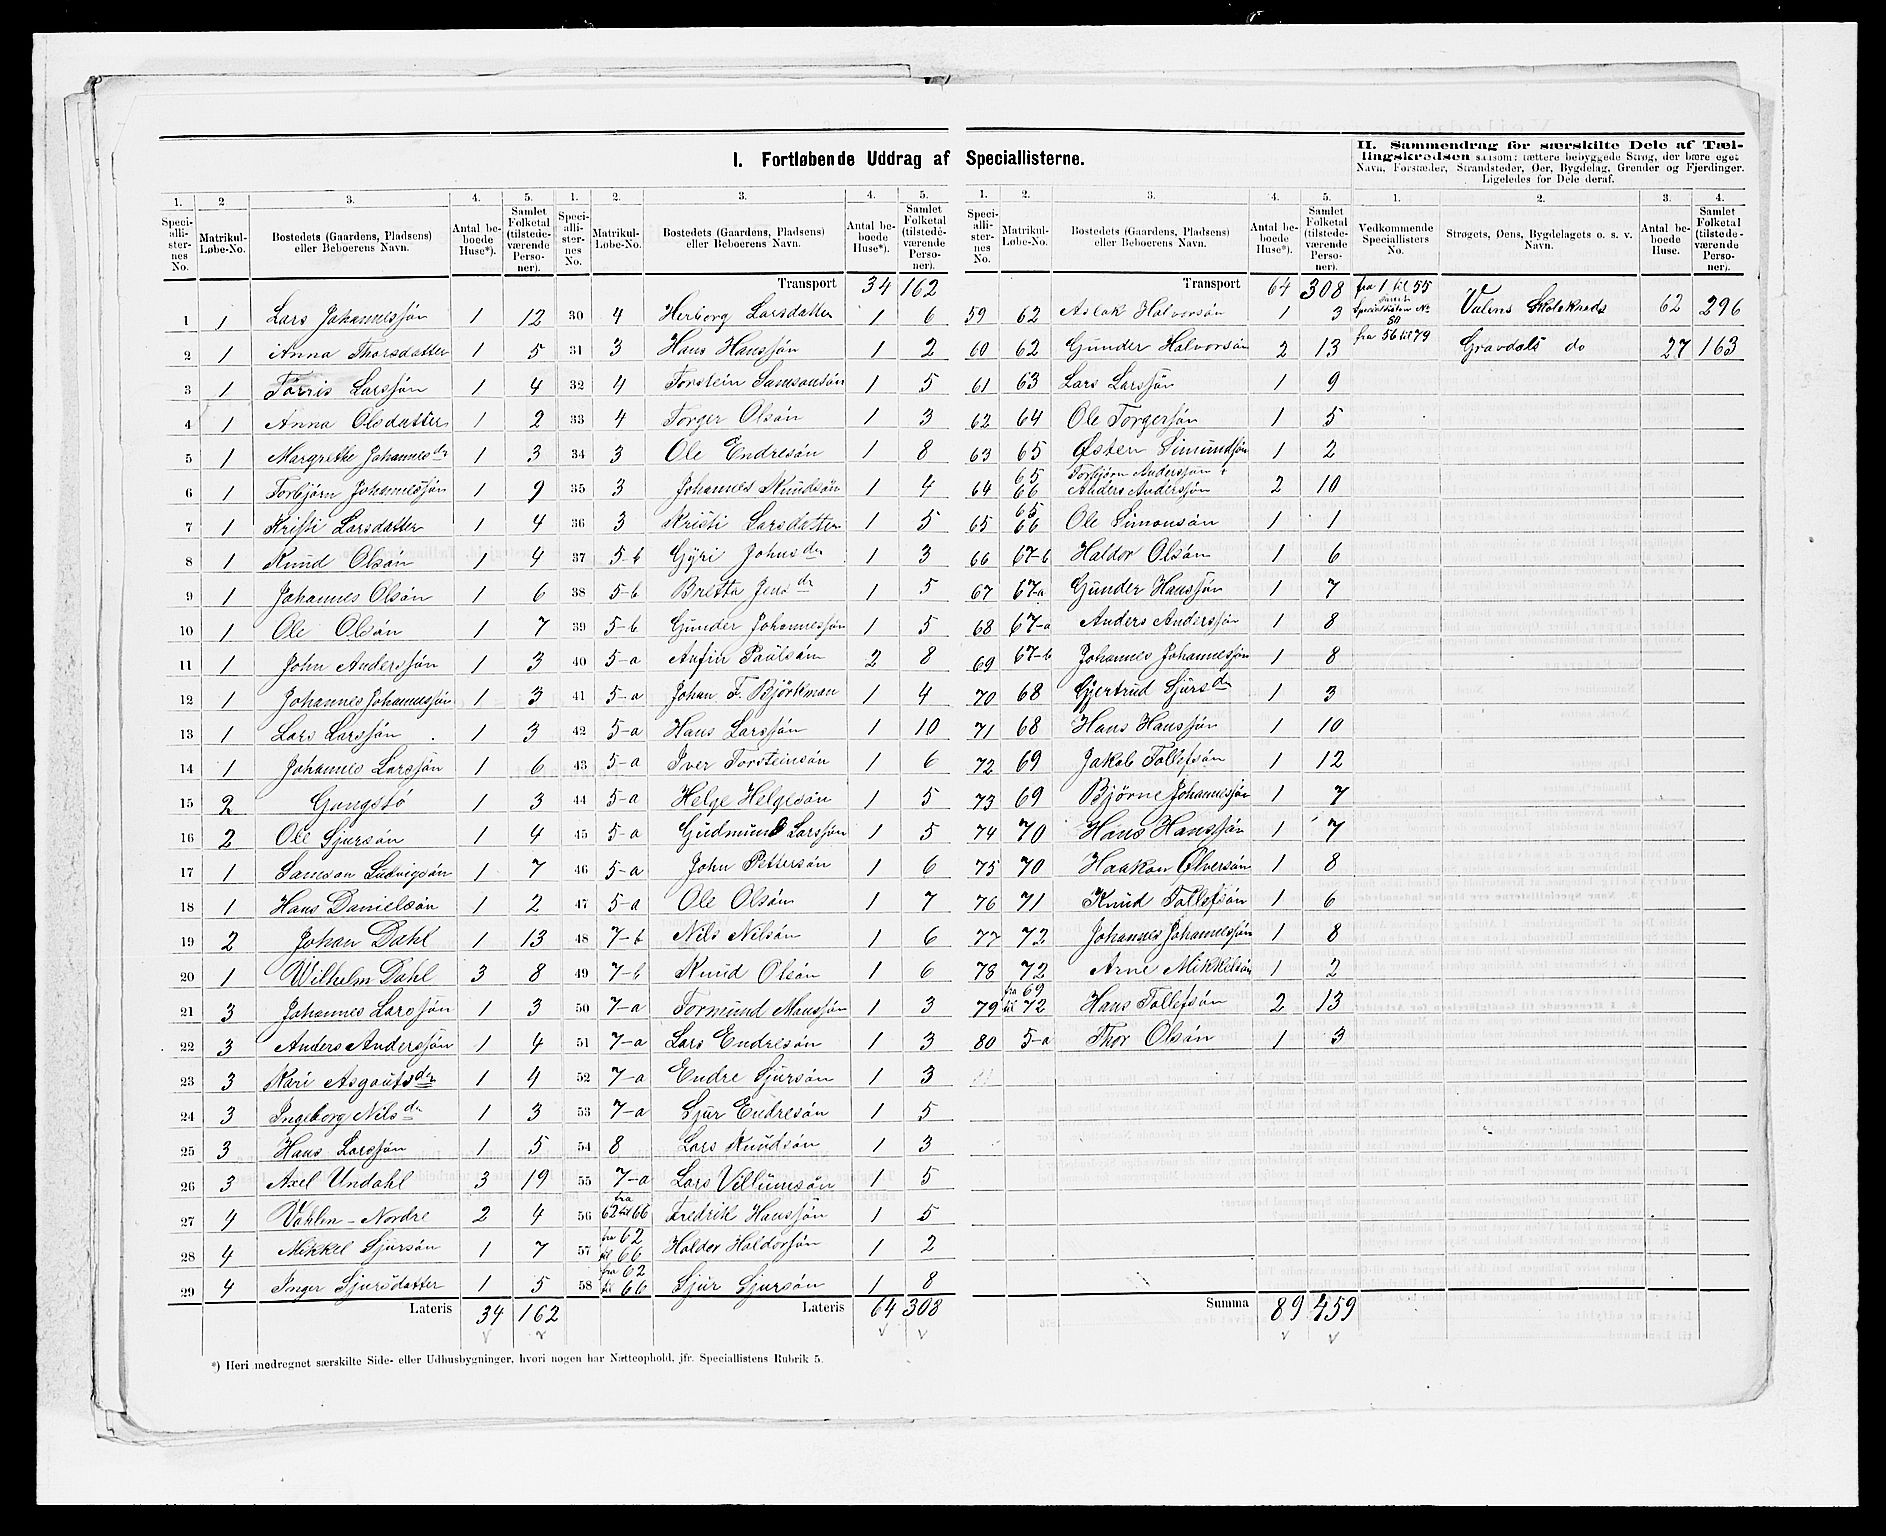 I. Fortløbende Uddrag af Speciallisterne.
II. Sammendrag for særskilte Dele af Tællingskredsen saasom: tættere bebyggede Strøg, der bære eget Navn, Forstæder, Strandsteder, Øer, Bygdelag, Grender og Fjerdinger. Ligeledes for Dele deraf.
1. 2 3. 4. 5. 1. 2. 3. 4. 5. 1. 2. 3. 4. 5. 1. 2. 3. 4.
Speciallisternes No. Matrikul-Løbe-No. Bostedets (Gaardens, Pladsens) eller Beboerens Navn. Antal beboede Huse*). Samlet Folketal (tilstedeværende Personer).
Speciallisternes No. Matrikul-Løbe-No. Bostedets (Gaardens, Pladsens) eller Beboerens Navn. Antal beboede Huse*). Samlet Folketal (tilstedeværende Personer).
Speciallisternes No. Matrikul-Løbe-No. Bostedets (Gaardens, Pladsens) eller Beboerens Navn. Antal beboede Huse*). Samlet Folketal (tilstedeværende Personer).
Vedkommende Speciallisters No. Strøgets, Øens, Bygdelagets o. s. v. Navn. Antal beboede Huse. Samlet Folketal (tilstedeværende Personer).
1 1 Lars Johannessøn 1 12
2 1 Anna Thorsdatter 1 5
3 1 Tørris Larssøn 1 4
4 1 Anna Olsdatter 1 2
5 1 Margrethe Johannesdr 1 3
6 1 Torbjørn Johannessøn 1 9
7 1 Kristi Larsdatter 1 4
8 1 Knud Olsøn 1 4
9 1 Johannes Olsøn 1 6
10 1 Ole Olsøn 1 7
11 1 John Anderssøn 1 3
12 1 Johannes Johannessøn 1 3
13 1 Lars Larssøn 1 3
14 1 Johannes Larssøn 1 6
15 2 Gongstø 1 3
16 2 Ole Sjursøn 1 4
17 1 Samson Ludvigsøn 1 7
18 1 Hans Danielsøn 1 2
19 2 Johan Dahl 1 13
20 1 Wilhelm Dahl 3 8
21 3 Johannes Larssøn 1 3
22 3 Anders Anderssøn 1 4
23 3 Kari Asgautsdr 1 4
24 3 Ingeborg Nilsdr 1 3
25 3 Hans Larssøn 1 5
26 3 Axel Undahl 3 19
27 4 Vahlen-Nordre 2 4
28 4 Mikkel Sjursøn 1 7
29 4 Inger Sjursdatter 1 5
Lateris 34 162
Transport 34 162
30 4 Herborg Larsdatter 1 6
31 3 Hans Hanssøn 1 2
32 4 Torstein Samsonsøn 1 5
33 4 Torger Olsøn 1 3
34 3 Ole Endresøn 1 8
35 3 Johannes Knudsøn 1 4
36 3 Kristi Larsdatter 1 5
37 5-b Gyri Johnsdr 1 3
38 5-b Bretta Jensdr 1 5
39 5-b Gunder Johannessøn 1 5
40 5-a Anfin Paulsøn 2 8
41 5-a Johan F. Björkman 1 4
42 5-a Hans Larssøn 1 10
43 5-a Iver Torsteinsøn 1 6
44 5-a Helge Helgesøn 1 5
45 5-a Gudmund Larssøn 1 5
46 5-a John Pettersøn 1 6
47 5-a Ole Olsøn 1 7
48 7-b Nils Nilsøn 1 6
49 7-b Knud Olsøn 1 6
50 7-a Tormund Monssøn 1 3
51 7-a Lars Endresøn 1 3
52 7-a Endre Sjursøn 1 3
53 7-a Sjur Endresøn 1 5
54 8 Lars Knudsøn 1 3
55 7-a Lars Villumsøn 1 5
56 fra 62 til 66 Fredrik Hanssøn 1 5
57 fra 62 til 66 Haldor Haldorsøn 1 2
58 fra 62 til 66 Sjur Sjursøn 1 8
Lateris 64 308
Transport 64 308
59 62 Aslak Halvorsøn 1 3
60 62 Gunder Halvorsøn 2 13
61 63 Lars Larssøn 1 9
62 64 Ole Torgersøn 1 5
63 65 Østen Simundssøn 1 2
64 65 66 Torbjørn Anderssøn Anders Anderssøn 2 10
65 65 66 Ole Simonsøn 1 1
66 67-b Haldor Olsøn 1 6
67 67-a Gunder Hanssøn 1 7
68 67-a Anders Anderssøn 1 8
69 67-b Johannes Johannessøn 1 8
70 68 Gjertrud Sjursdr 1 3
71 68 Hans Hanssøn 1 10
72 69 Jakob Tollefsøn 1 12
73 69 Bjørne Johannessøn 1 7
74 70 Hans Hanssøn 1 7
75 70 Haakon Ølversøn 1 8
76 71 Knud Tollefsøn 1 6
77 72 Johannes Johannessøn 1 8
78 72 Arne Mikkelsøn 1 2
79 fra 69 til 72 Hans Tollefsøn 2 13
80 5-a Thor Olsøn 1 3
Summa 89 459
fra 1 til 55 samt Specialisten No 80 Valens Skolekreds 62 296
fra 56 til 79 Gravdals do 27 163
*) Heri medregnet særskilte Side- eller Udhusbygninger, hvori nogen har Natteophold, jfr. Speciallistens Rubrik 5.